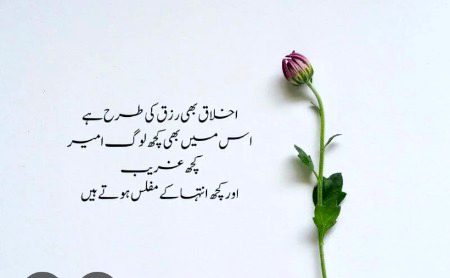 اخلاق بھی رزق کی طرح ہے
اس میں بھی کچھ لوگ امیر
کچھ غریب
اور کچھ انتہا کے مفلس ہوتے ہیں